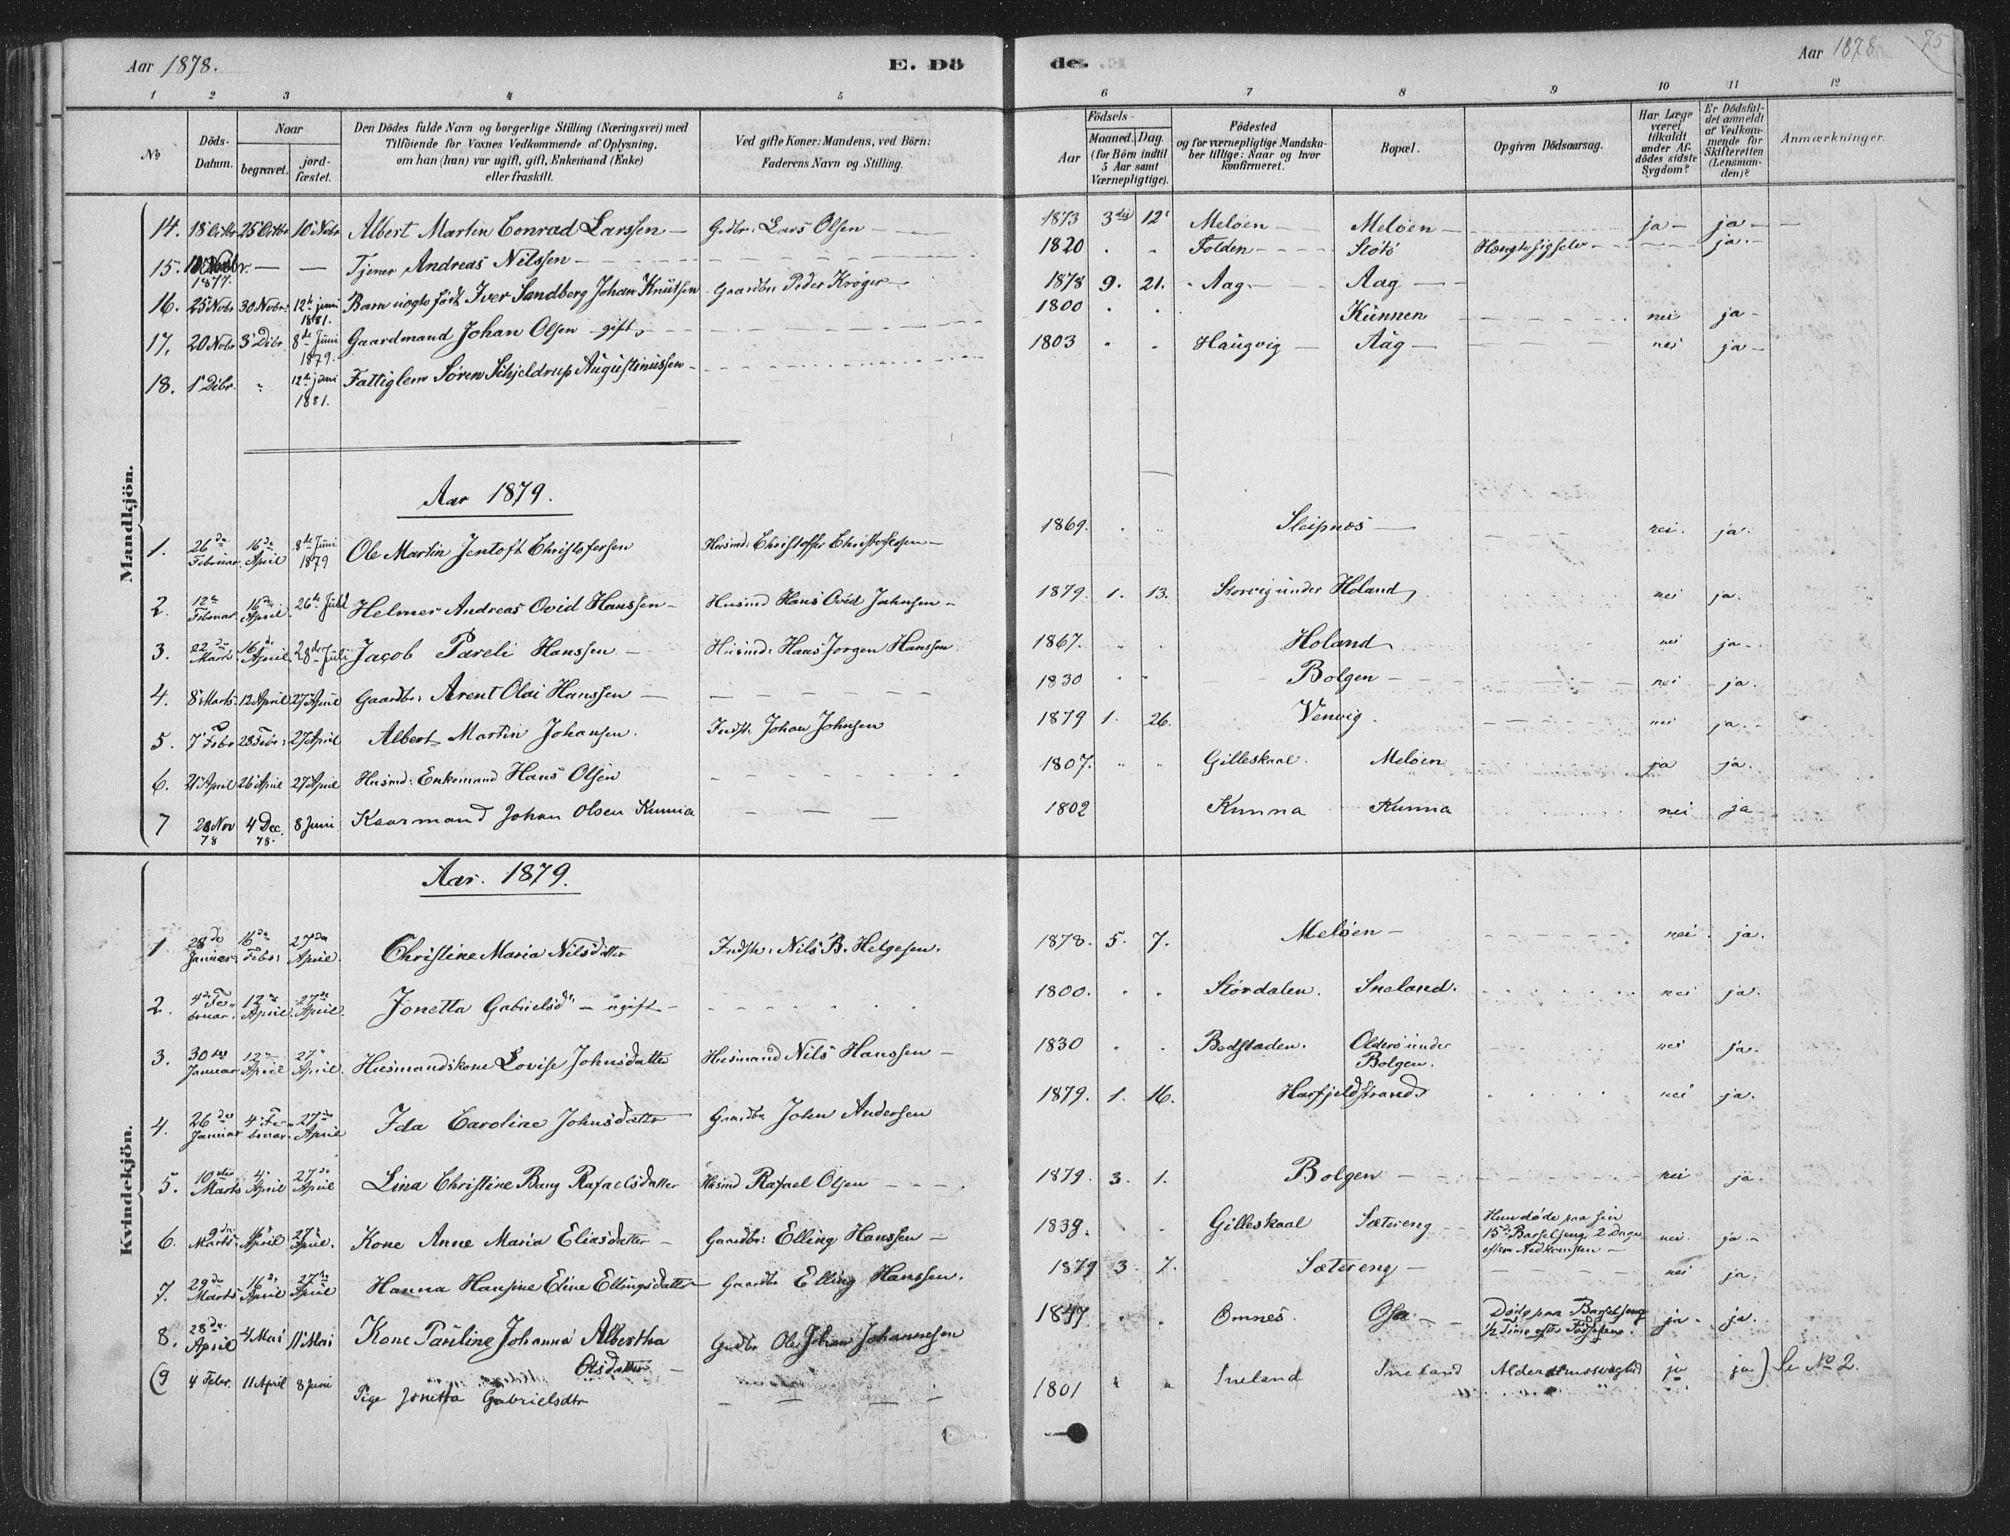 Aar 1878. E. Dö
de. Aar 1878 75
1 2 3 4 5 6 7 8 9 10 11 12
No
Döds-
Datum.
Naar
begravet.
jord-
fæstet.
Den Dödes fulde Navn og borgerlige Stilling (Næringsvei) med
Tilföiende for Voxnes Vedkommende af Oplysning,
om han (hun) var ugift, gift, Enkemand (Enke)
eller fraskilt.
Ved gifte Koner: Mandens, ved Börn:
Faderens Navn og Stilling.
Födsels-
Aar
Maaned. Dag.
(for Börn indtil
5 Aar samt
Værnepligtige).
Födested
og for værnepligtige Mandska-
ber tillige: Naar og hvor
konfirmeret.
Bopæl.
Opgiven Dödsaarsag.
Har Læge
været
tilkaldt
under Af-
dödes sidste
Sygdom?
Er Dödsfal-
det anmeldt
af Vedkom-
mende for
Skifteretten
(Lensman-
den)?
Anmærkninger.
Mandkjön.
14. 18 Octbr 25 Octbr 10 Novbr Albert Martin Conrad Larssen — Grdbr. Lars Olsen — 1873 3 12 Meløen — Meløen — ja — ja —
15. 1877. — — Tjener Andreas Nilssen — 1820 Folden — Støtt ja —
16. 25 Novbr 30 Novbr. 12te juni 1881. Barn uægte født Iver Sandberg Johan Knutsen Gaardbr Peder Krøger 1878 9. 21. Aag — Aag —
17. 20 Novbr 3 Dcbr. 8de Juni 1879. Gaardmand Johan Olsen — gift 1800 Kunnen nei ja —
18. 1 Dcbr. " 12te juni 1881. Fattiglem Søren Schjeldrup Augustinussen — 1803 Haugvig — Aag — nei ja —
Aar 1879.
1. 26de Februar 16de April 8de Juni 1879 Ole Martin Jentoft Christofersen Husmd: Christoffer Christofersen — 1869. Sleipnes — nei. ja.
2. 12te Februar 16de April 26de Juli Helmer Andreas Ovid Hanssen — Husmd Hans Ovid Johnsen — 1879. 1. 13. Storvig under Holand, nei ja.
3. 22de Marts 16de April 28de Juli Jacob Pareli Hanssen — Husmd: Hans Jørgen Hanssen. 1867. Holand, nei ja —
4. 8 Marts 12 April 27 April Gaardbr: Arent Olai Hanssen — 1830 Bolgen — nei ja.
5. 7 Febr 28 Febr: 27 April Albert Martin Johansen. Indst. Johan Johnsen 1879 1. 26. Venvig. nei ja.
6. 21 April 26 April 27 April Husmd: Enkemand Hans Olsen 1807. Gilleskaal Meløen ja ja.
7 28 Nov 78 4 Dec. 78. 8 Juni Kaarmand Johan Olsen Kunna 1802 Kunna Kunna nei ja
Kvindekjön.
Aar. 1879.
1 28de Januar 16de Febr: 27de April Christine Maria Nilsdatter Indst: Nils B. Helgesen. 1878. 5. 7. Meløen — nei. ja.
2. 4de Februar 12te April 27de April Jonetta Gabrielsd. — ugift — 1800. Størdalen. Sneland. nei ja.
3. 30te Januar 12te April 27de April. Husmandskone Lovise Johnsdatter Husmand Nils Hanssen — 1830 Bodstaden. Olderø under
Bolgen. nei ja.
4. 26de Januar 4 Februar 27de April Ida Caroline Johnsdatter Gaardbr. John Andersen 1879. 1. 16. Harfjeldstrand nei ja.
5. 10de Marts 4 April 27de April Lina Christine Bang Rafaelsdatter Husmd Rafael Olsen 1879. 3. 1. Bolgen — nei ja.
6. 9de Marts April 27 April. Kone Anne Maria Eliasdatter — Gaardbr: Elling Hanssen — 1839. Gilleskaal Sætereng — Hun døde paa sin
15de Barselseng 2 Dage
efter Nedkomsten — nei ja —
7. 29de Marts 16de April 27de April Hanna Hansine Eline Ellingsdatter Gaardbr Elling Hanssen. 1879 3. 7. Sætereng — nei ja.
8. 28de April 4 Mai 11 Mai Kone Pauline Johanna Albertha
Olsdatter — Grdbr Ole Johan Johannesen 1847 Omnes. Osa — Døde paa Barselseng
½ Time efter Fødselen. ja. ja.
(9 4 Febr. 11 April 8 Juni Pige Jonetta Gabrielsdtr 1801 Sneland Sneland Alderdomssvaghed ja ja) Se No 2.